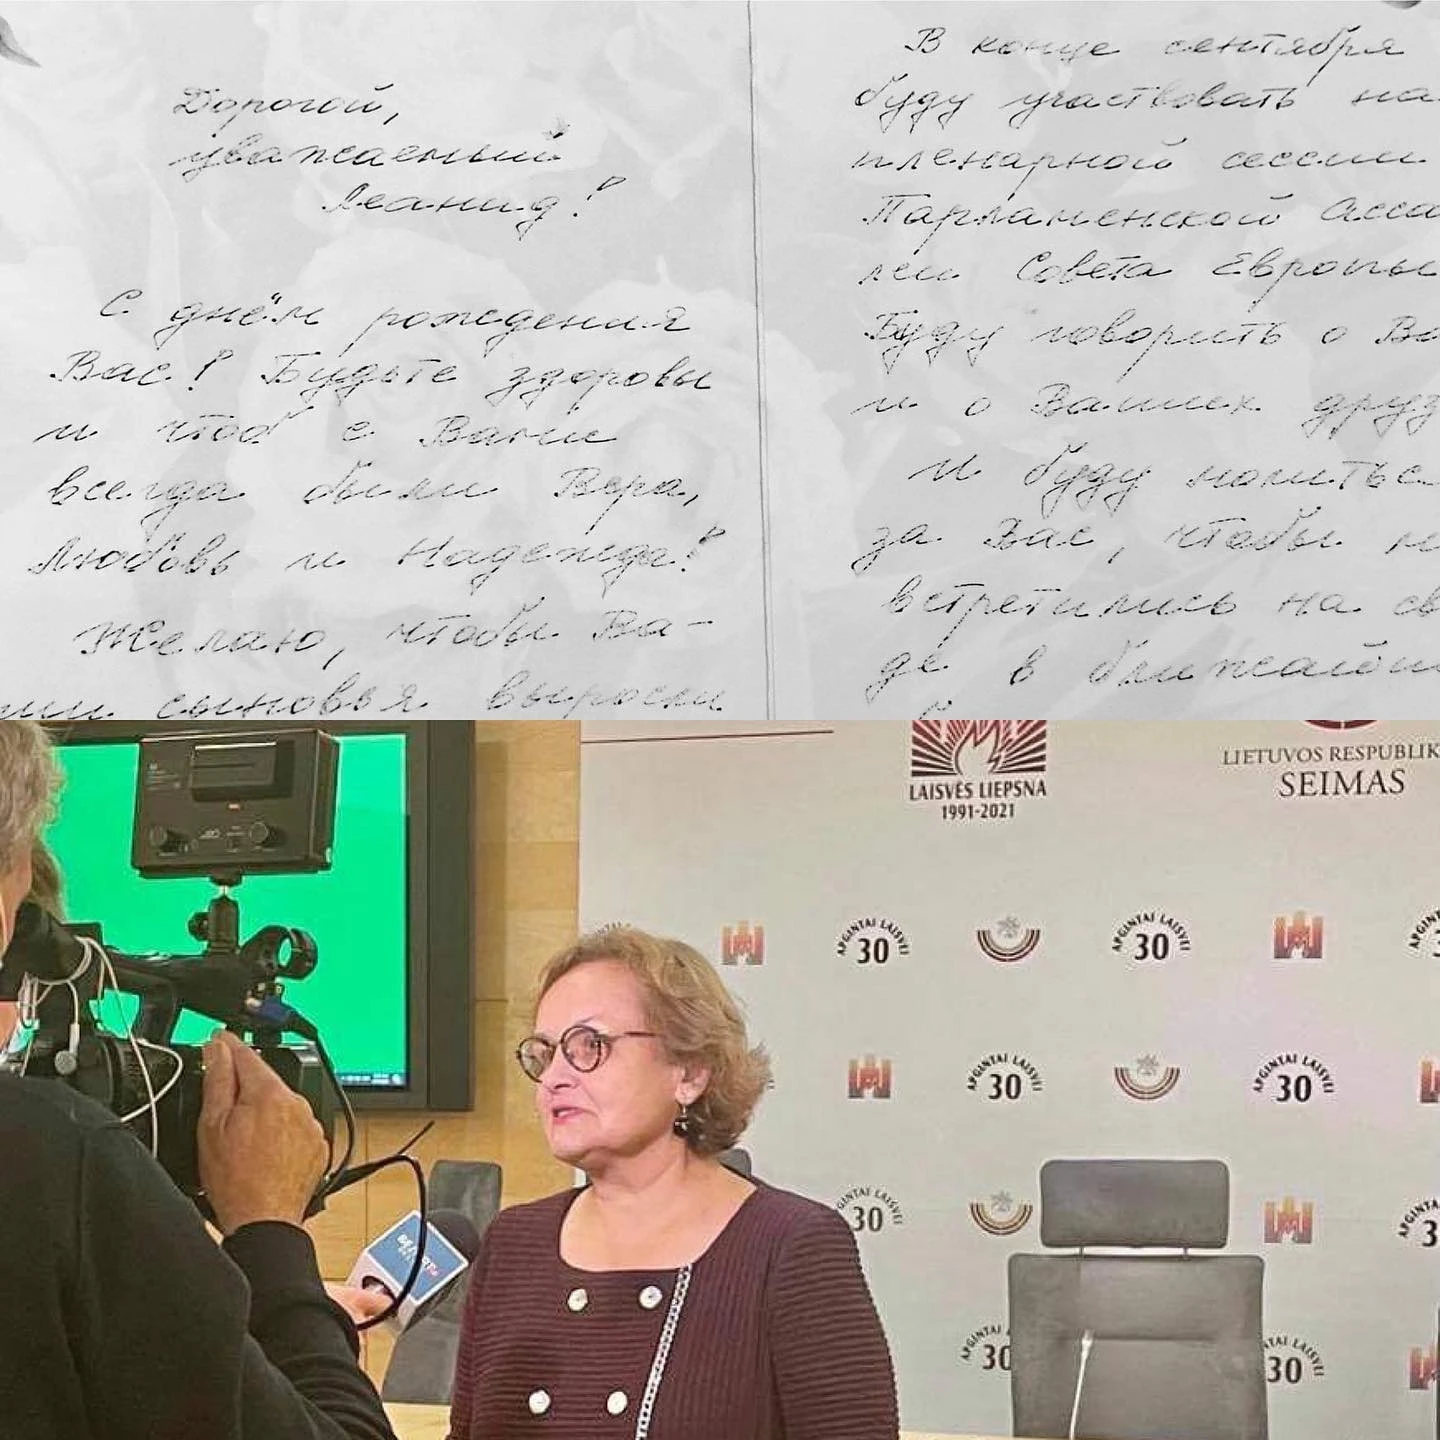 Дорогой,
уважаемый
Леанид!
С днём рождения
Вас! Будьте здоровы
и чтоб с Вами
всегда были Вера,
Любовь и Надежда!
Желаю, чтобы Ва-
ши сыновья выросли
В конце сентября
буду участвовать на
пленарной сессии
Парламенской Асса
леи Совета Европы
Буду говорить о Ва
и о Ваших друз
И буду молиться
за Вас, чтобы м
встретились на св
де в ближайш
LAISVĖS LIEPSNA
1991-2021
LIETUVOS RESPUBLIK
SEIMAS
APGINTAI LAISVEI
30
APGINTAI LAISVEI
30
APGINTAI LAISVEI
30
APGINTAI LAISVEI
30
APGINTAI LAISVEI
30
30
30